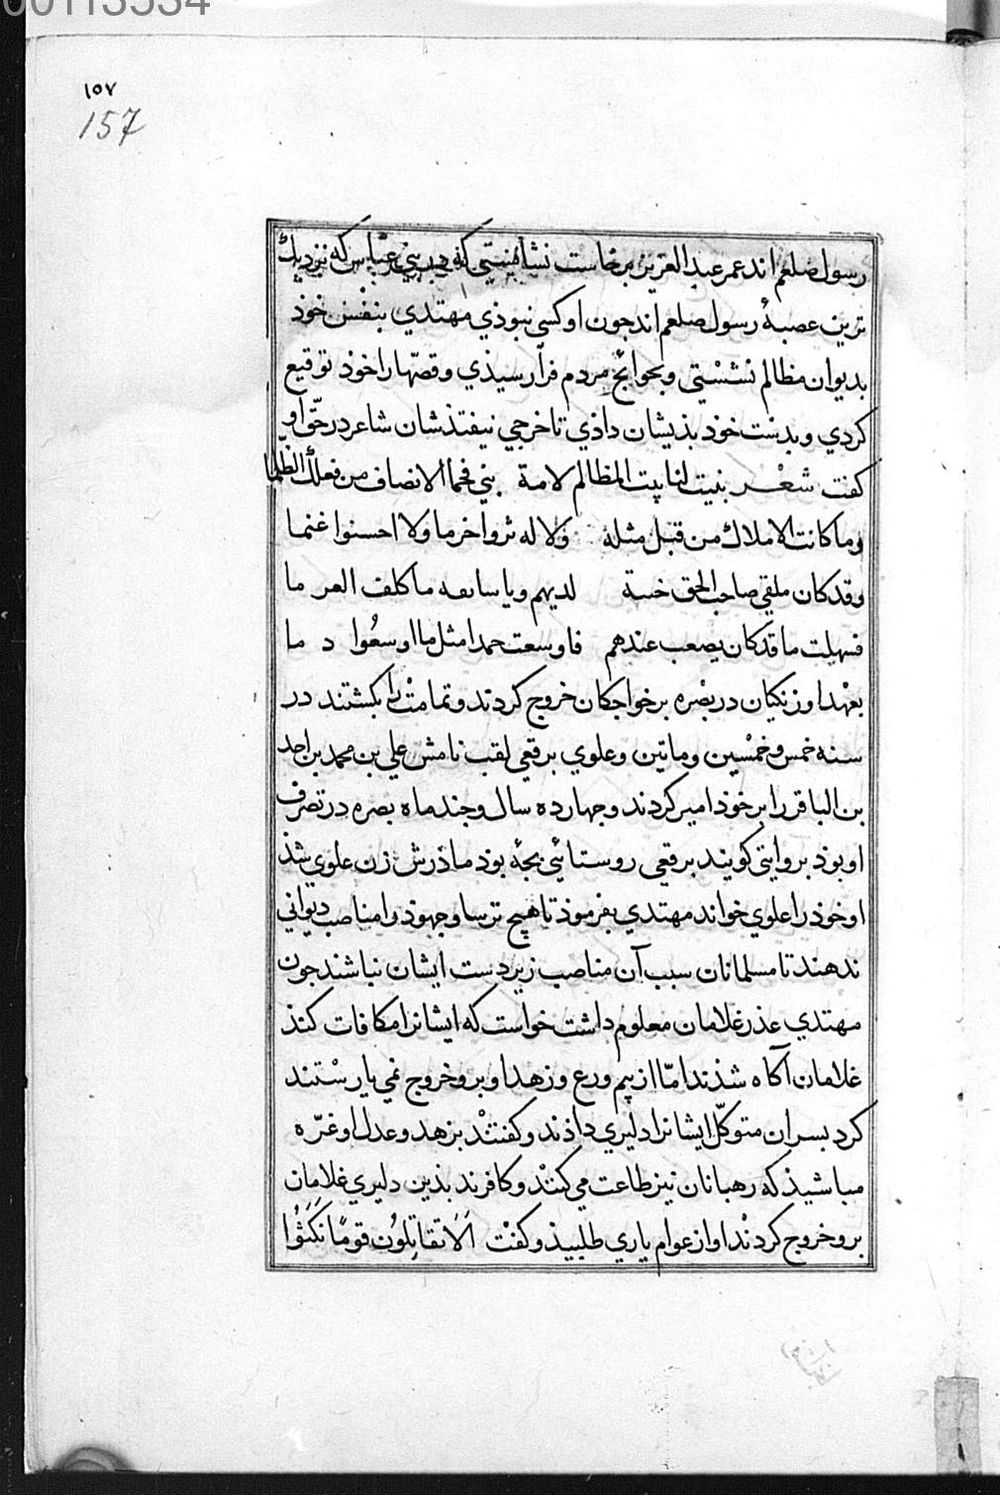 00113534
١٥٧
157
رسول صلعم اند عمر عبد العزیز برخاست نشایستی که در بنی عباس که نزدیک
ترین عصبهٔ رسول صلعم اند جون او کسی نبوذی مهتدی بنفس خوذ
بدیوان مظالم نشستی و بحوائج مردم فرا رسیذی و قصّها را خوذ توقیع
کردی و بدست خوذ بذیشان داذی تا خرجی نیفتذشان شاعر در حقّ او
کفت شعر بنیت لنا بیت المظالم لامة بنی فحما الانصاف من فعلك الظلما
وما کانت الاملاك من قبل مثله ولا له ثروا خرما ولا احسنوا غنما
وقد کان ملقی صاحب الحق خسة لدیهم و یا سابعه ما کلف العر ما
فسهلت ما قد کان یصعب عندهم فاوسعت حمدا مثل ما اوسعُوا د ما
بعهد او زنکیان در بصره بر خواجکان خروج کردند و تمامت را بکشتند در
سنه خمس و خمسین و ماتین و علوی برقعی لقب نامش علی بن محمد بن احد
بن الباقر را بر خوذ امیر کردند و جهارده سال و جند ماه بصره در تصرف
او بوذ بروایتی کویند برقعی روستائی بجهٔ بوذ ماذرش زن علوی شذ
او خوذ را علوی خواند مهتدی بفرموذ تا هیچ ترسا و جهوذ را مناصب دیوانی
ندهند تا مسلمانان سبب آن مناصب زیردست ایشان نباشند جون
مهتدی عذر غلامان معلوم داشت خواست که ایشانرا مکافات کنذ
غلامان آکاه شذند امّا از بیم ورع و زهد او برو خروج نمی یارستند
کرد بسران متوکّل ایشانرا دلیری داذند و کفتند بزهد و عدل او غرّه
مباشیذ که رهبانان نیز طاعت می کنند و کافرند بذین دلیری غلامان
برو خروج کردند او از عوام یاری طلبیذ و کفت اَلَا تقاتِلوُن قومًا نَکَثُوا